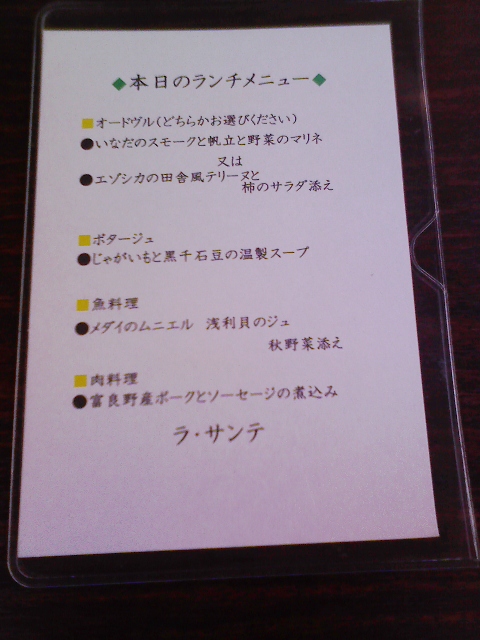 ◆本日のランチメニュー◆
■オードヴル(どちらかお選びください)
●いなだのスモークと帆立と野菜のマリネ
又は
●エゾシカの田舎風テリーヌと
柿のサラダ添え
■ポタージュ
●じゃがいもと黒千石豆の温製スープ
■魚料理
●メダイのムニエル 浅利貝のジュ
秋野菜添え
■肉料理
●富良野産ポークとソーセージの煮込み
ラ・サンテ